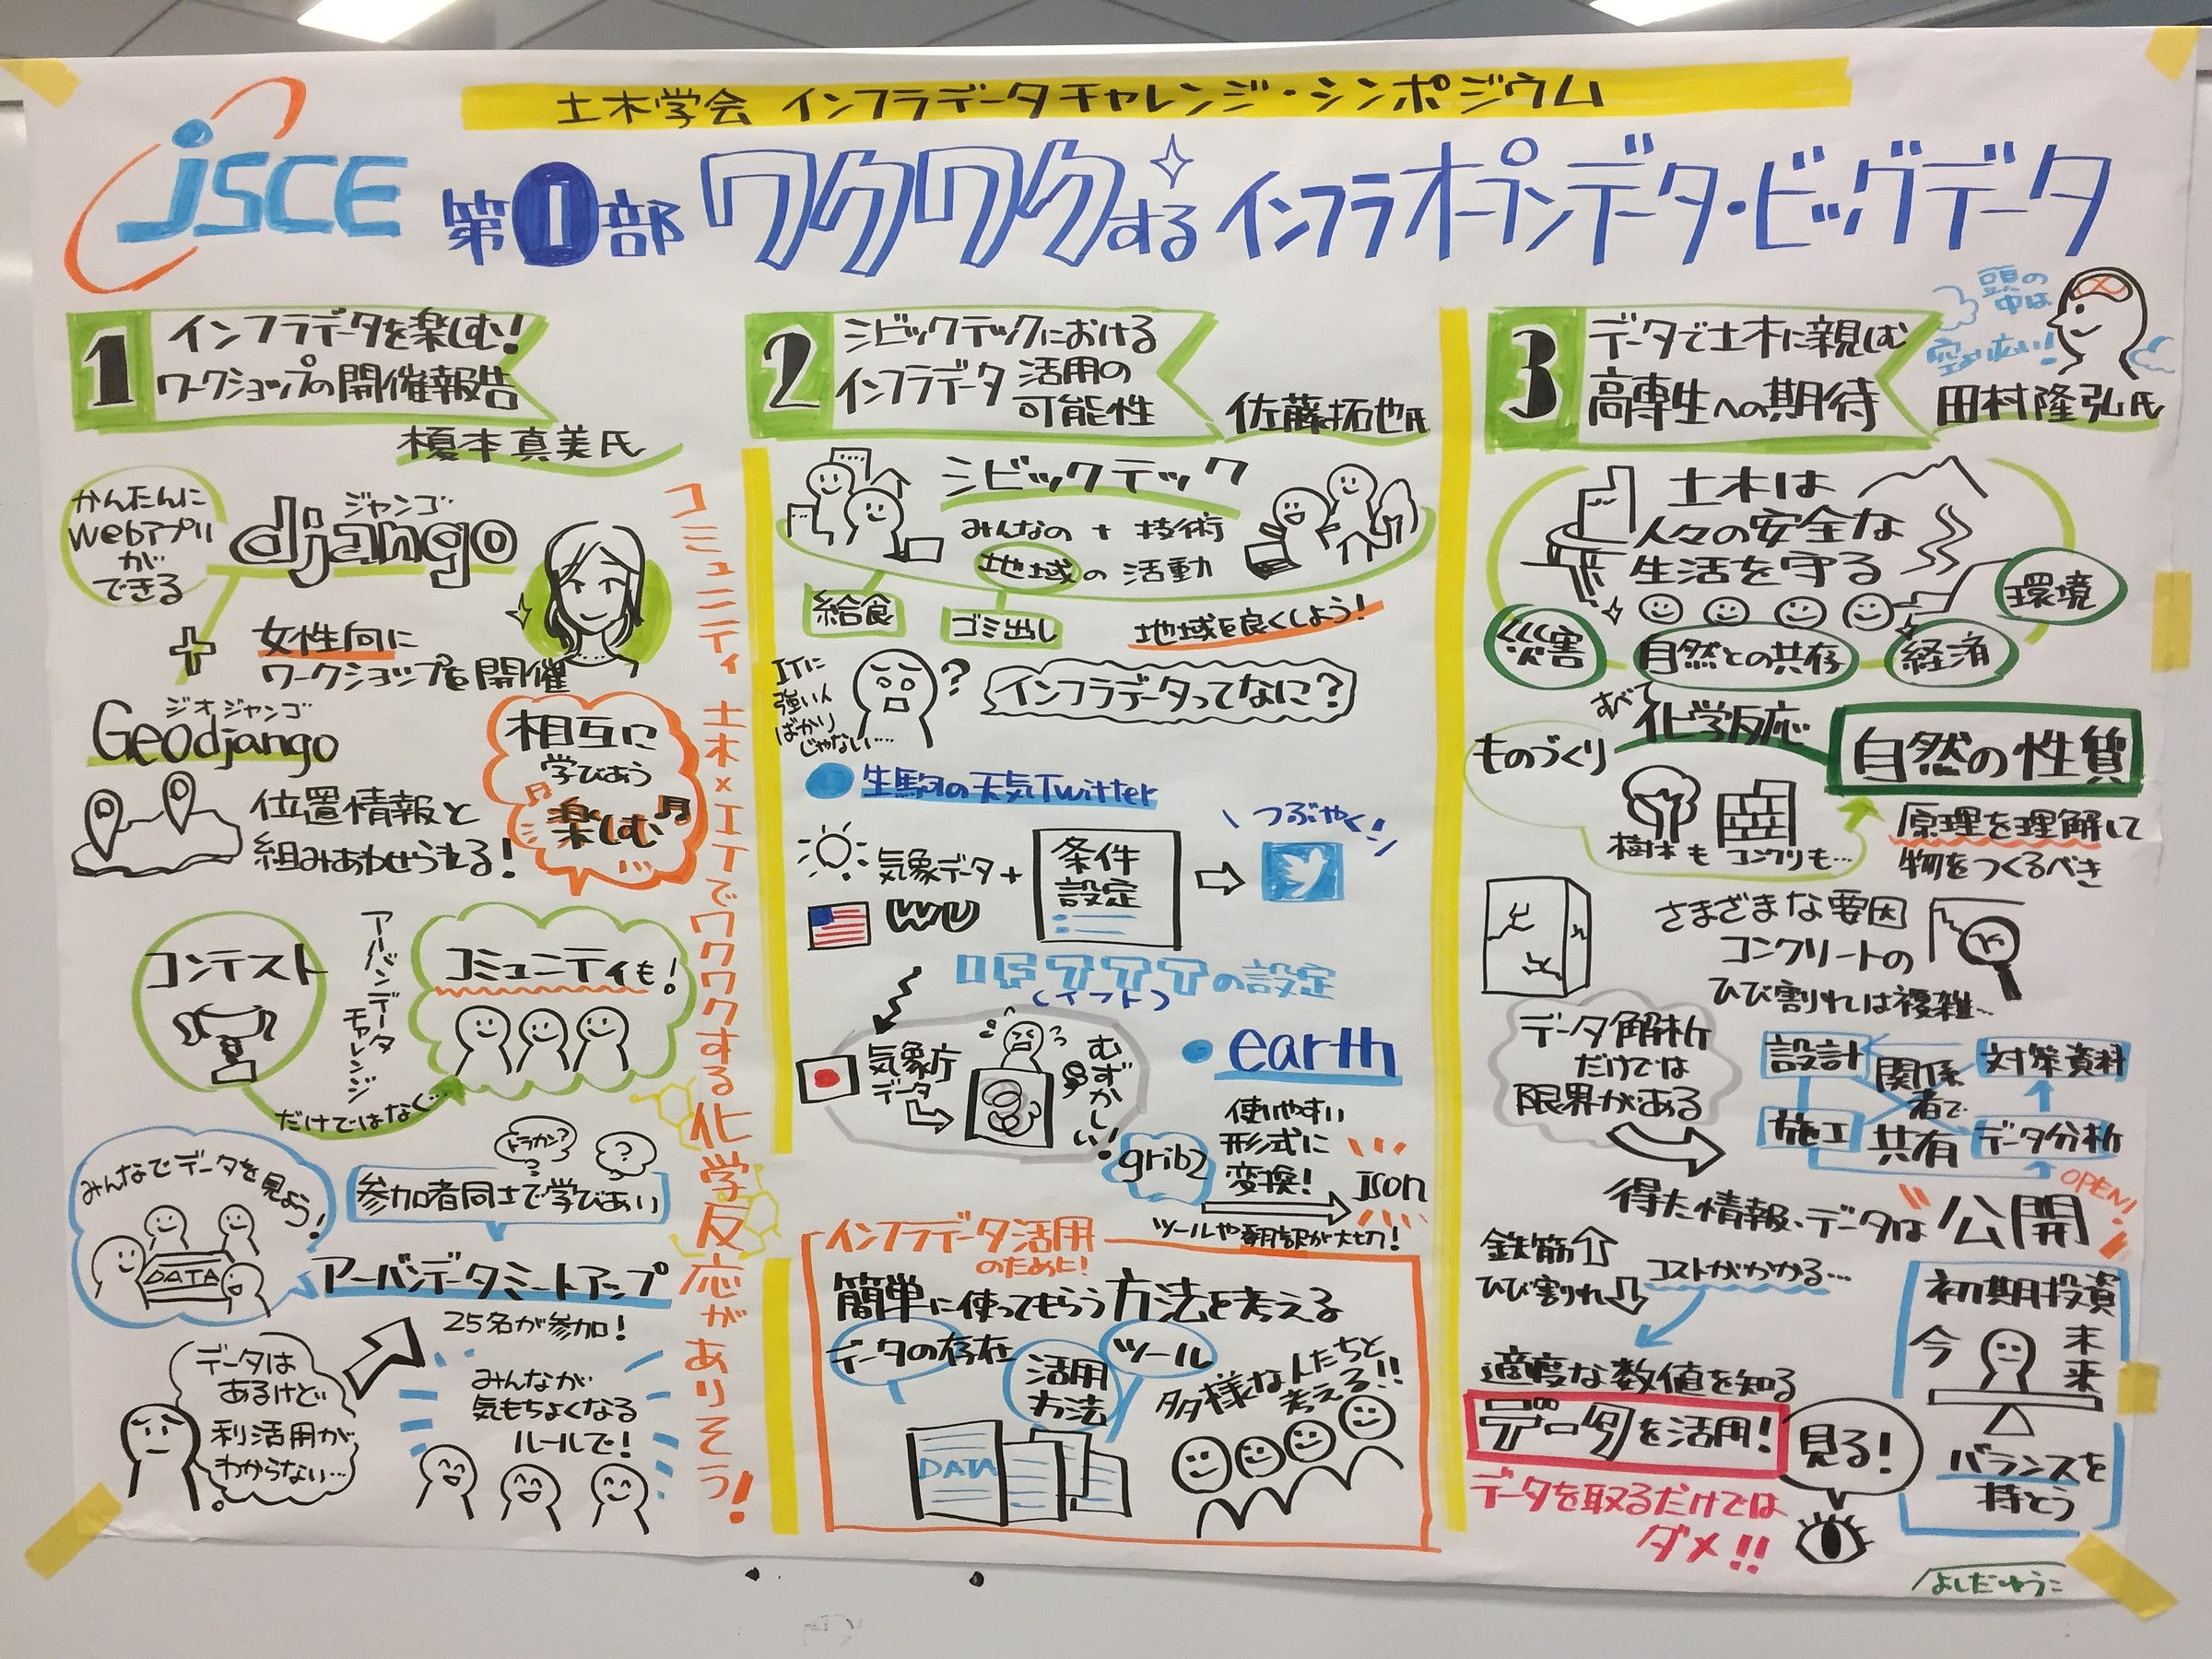 土木学会 インフラデータチャレンジ・シンポジウム
JSCE
第1部 ワクワクする インフラオープンデータ・ビッグデータ
1
インフラデータを楽しむ!
ワークショップの開催報告
榎本真美氏
かんたんに
Webアプリ
が
できる
ジャンゴ
django
+
女性向に
ワークショップを開催
ジオジャンゴ
Geodjango
位置情報と
組みあわせられる!
相互に
学びあう
楽しむ
コンテスト
アーバンデータ
チャレンジ
コミュニティも!
だけではなく…
みんなでデータを見よう!
DATA
トラカン?
?
参加者同士で学びあい
アーバンデータミートアップ
25名が参加!
データは
あるけど
利活用が
わからない…
みんなが
気もちよくなる
ルールで!
コミュニティ 土木×ITでワクワクする化学反応がありそう!
2
シビックテックにおける
インフラデータ 活用の
可能性
佐藤拓也氏
シビックテック
みんなの + 技術
地域の 活動
給食
ゴミ出し
地域を良くしよう!
ITに
強い人
ばかり
じゃない…
?
インフラデータってなに?
生駒の天気Twitter
気象データ+
WU
条件
設定
つぶやく!
IFTTTの設定
(イフト)
気象庁
データ
むずかしい!
earth
使いやすい
形式に
変換!
grib2
json
ツールや翻訳が大切!
インフラデータ活用
のために!
簡単に使ってもらう方法を考える
データの存在
活用
方法
ツール
多様な人たちと
考える!!
DATA
3
データで土木に親しむ
高専生への期待
頭の
中は
空より広い!
田村隆弘氏
土木は
人々の安全な
生活を守る
環境
災害
自然との共存
経済
すべて
化学反応
ものづくり
自然の性質
樹木も コンクリも…
原理を理解して
物をつくるべき
さまざまな要因
コンクリートの
ひび割れは複雑…
データ解析
だけでは
限界がある
設計
関係
者で
共有
対策資料
施工
データ分析
得た情報、データは
公開
OPEN!
鉄筋
ひび割れ
コストがかかる…
適度な数値を知る
データを活用!
見る!
データを取るだけでは
ダメ!!
初期投資
今
未来
バランスを
持とう
よしだゆうこ